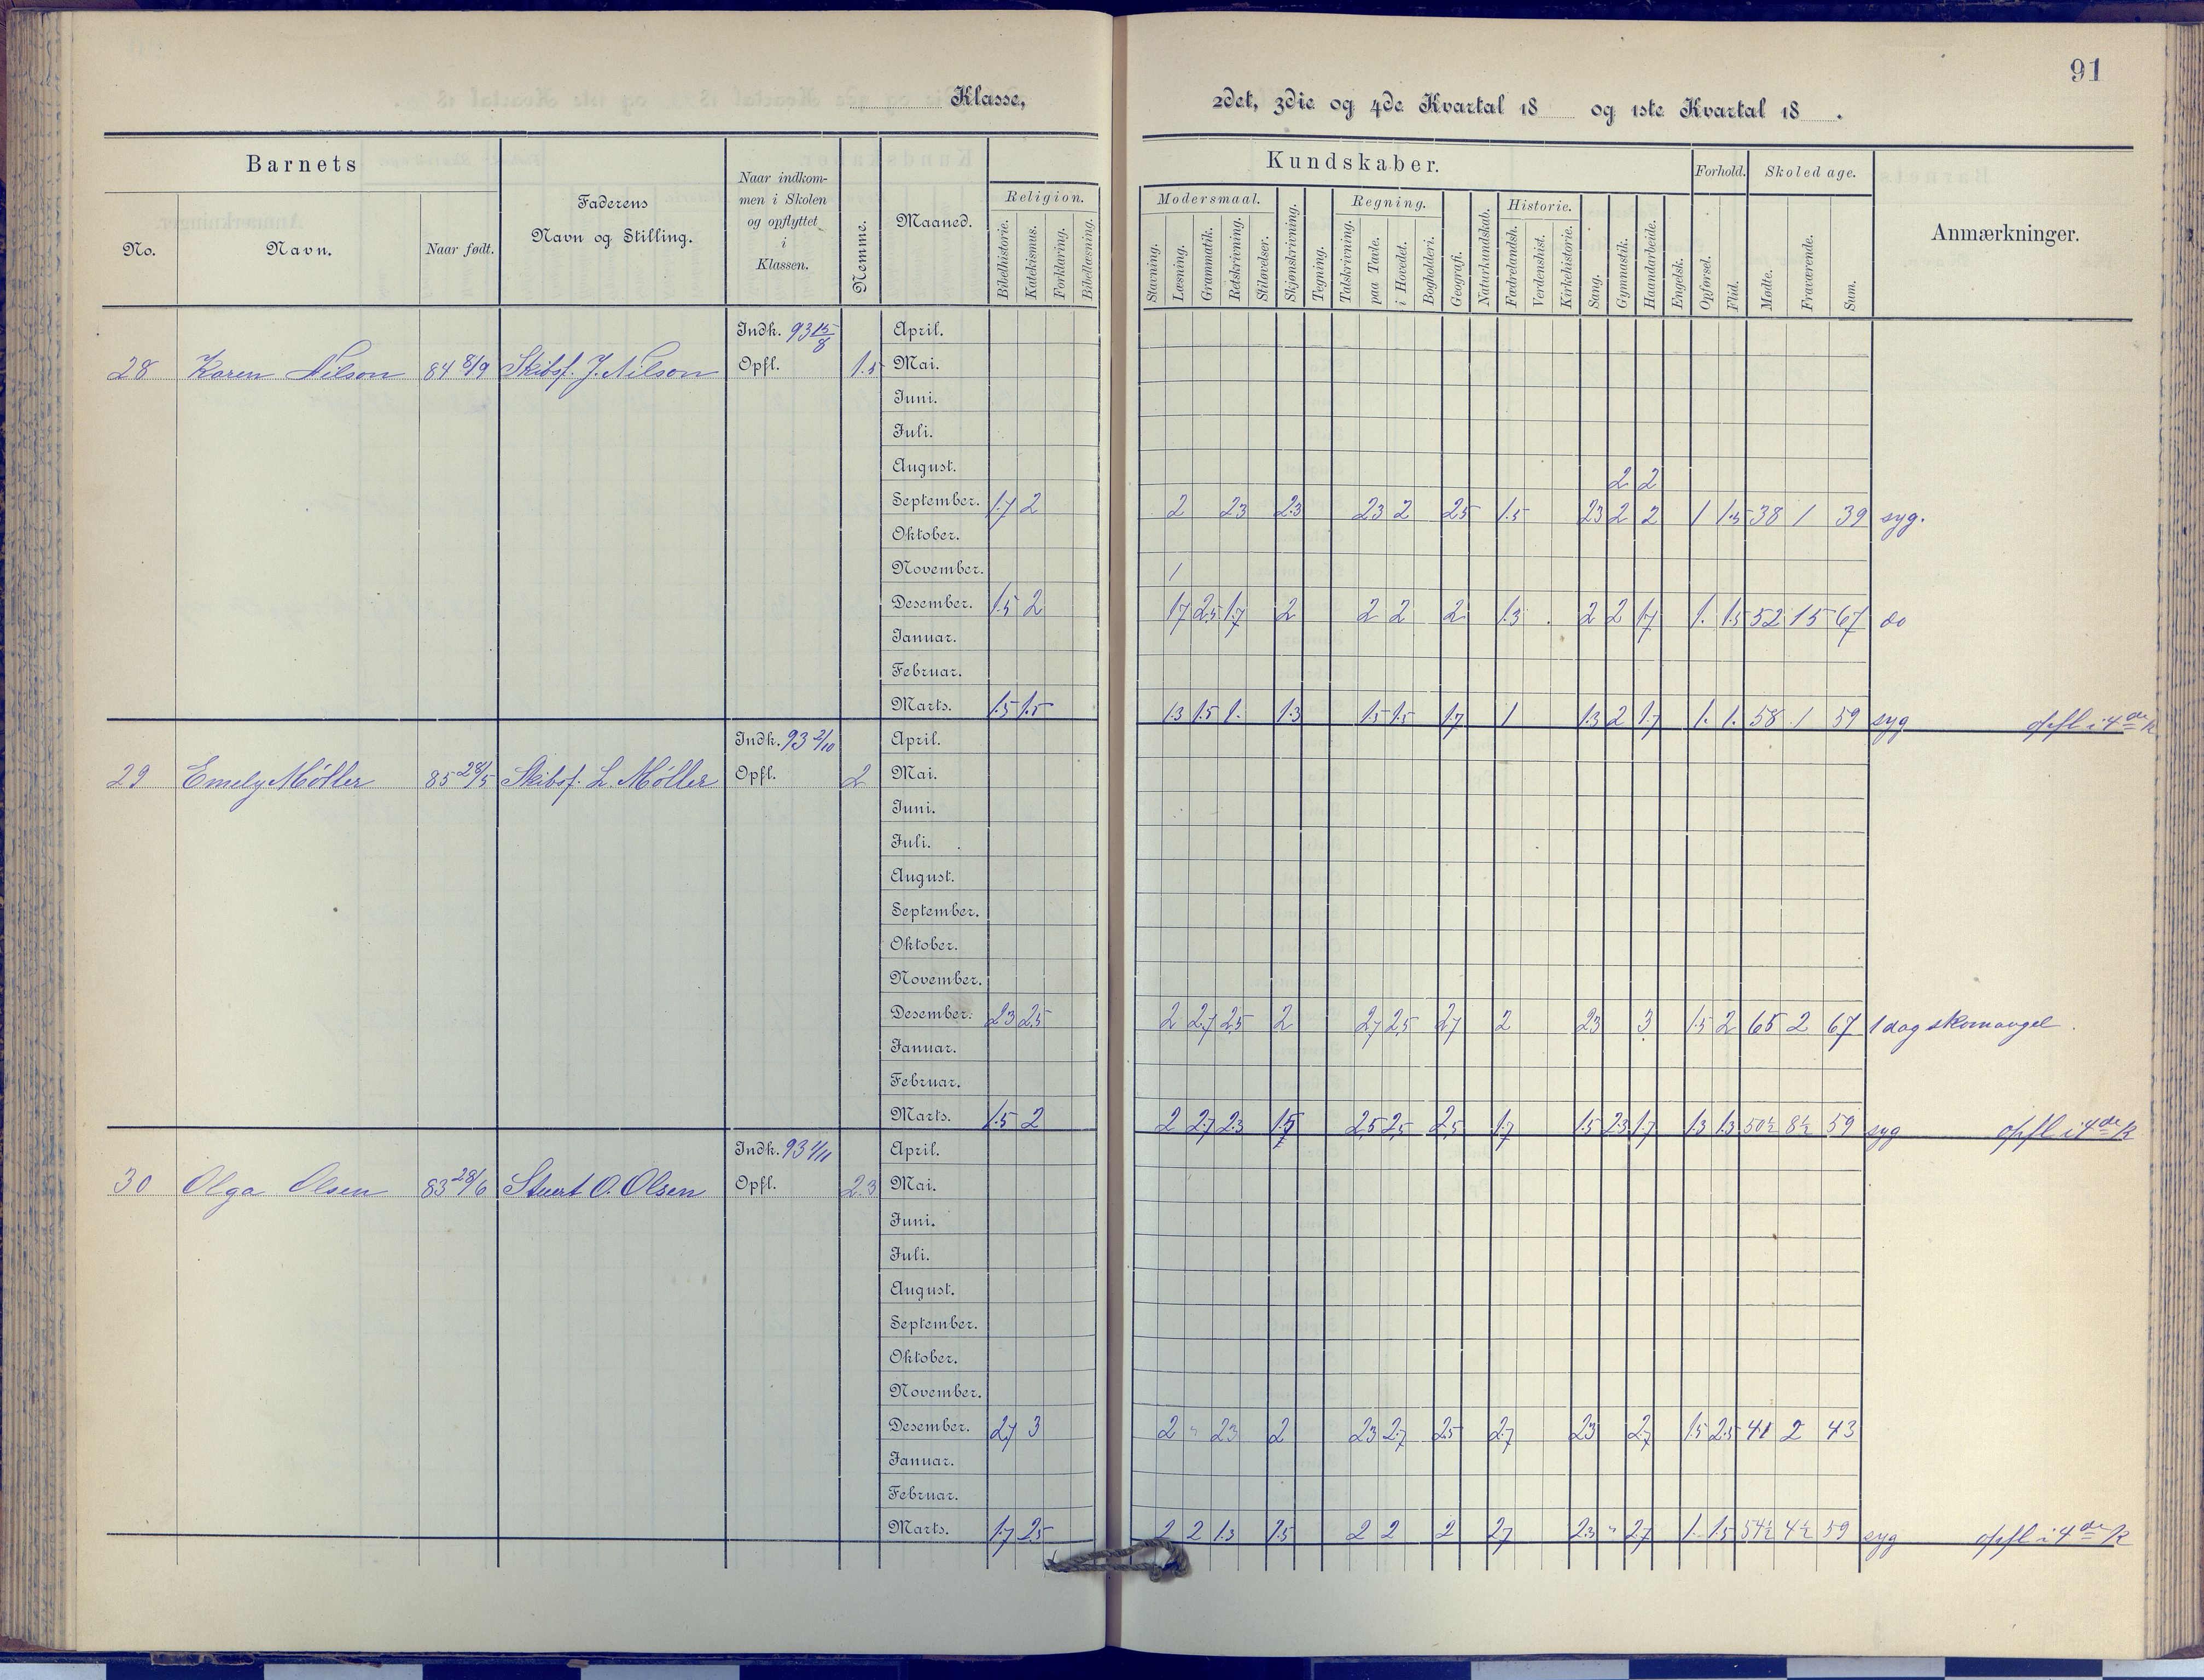 91
Klasse,
2det, 3die og 4de Kvartal 18 og 1ste Kvartal 18 .
Barnets
No.
Navn.
Naar født.
Faderens
Navn og Stilling.
Naar indkom-
men i Skolen
og opflyttet
i
Klassen.
Nemme.
Maaned.
Kundskaber.
Religion.
Bibelhistorie.
Katekismus.
Forklaring.
Bibellæsning.
Modersmaal.
Stavning.
Læsning.
Grammatik.
Retskrivning.
Stiløvelser.
Skjønskrivning.
Tegning.
Regning.
Talskrivning.
paa Tavle.
i Hovedet.
Bogholderi.
Geografi.
Naturkundskab.
Historie.
Fædrelandsh.
Verdenshist.
Kirkehistorie.
Sang.
Gymnastik.
Haandarbeide.
Engelsk.
Forhold.
Opførsel.
Flid.
Skoledage.
Mødte.
Fraværende.
Sum.
Anmærkninger.
Indk. 93 15/8 April.
28 Karen Nilson 84 8/9 Skibsf. J. Nilson Opfl. 1.5 Mai.
Juni.
Juli.
August.
2 2
September. 1.7 2 2 23 2.3 23 2 25 1.5 23 2 2 1 1.5 38 1 39 syg.
Oktober.
November. 1
Desember. 1.5 2 17 2.5 1.7 2 2 2 2 1.3 2 2 1.7 1. 1.5 52 15 67 do
Januar.
Februar.
Marts. 1.5 1.5 1.3 1.5 1. 1.3 1.5 1.5 1.7 1 1.3 2 1.7 1. 1. 58 1 59 syg opfl i 4de K
Indk. 93 2/10 April.
29 Emely Möller 85 28/5 Skibsf. L. Möller Opfl. 2 Mai.
Juni.
Juli.
August.
September.
Oktober.
November.
Desember. 23 25 2 2.7 25 2 2.7 2.5 27 2 23 3 1.5 2 65 2 67 1 dag skomangel
Januar.
Februar.
Marts. 1.5 2 2 2.7 2.3 1.5 2.5 2.5 2.5 1.7 1.5 2.3 1.7 1.3 1.3 50½ 8½ 59 syg opfl i 4de K
Indk. 93 1/11 April.
30 Olga Olsen 83 28/6 Stuert O. Olsen Opfl. 2.3 Mai.
Juni.
Juli.
August.
September.
Oktober.
November.
Desember. 2.7 3 2 " 23 2 23 2.7 25 2.7 23 2.7 1.5 2.5 41 2 43
Januar.
Februar.
Marts. 1.7 2.5 2 2 1.3 1.5 2 2 2 2.7 2.3 " 2.7 1. 1.5 54½ 4½ 59 syg opfl i 4de K